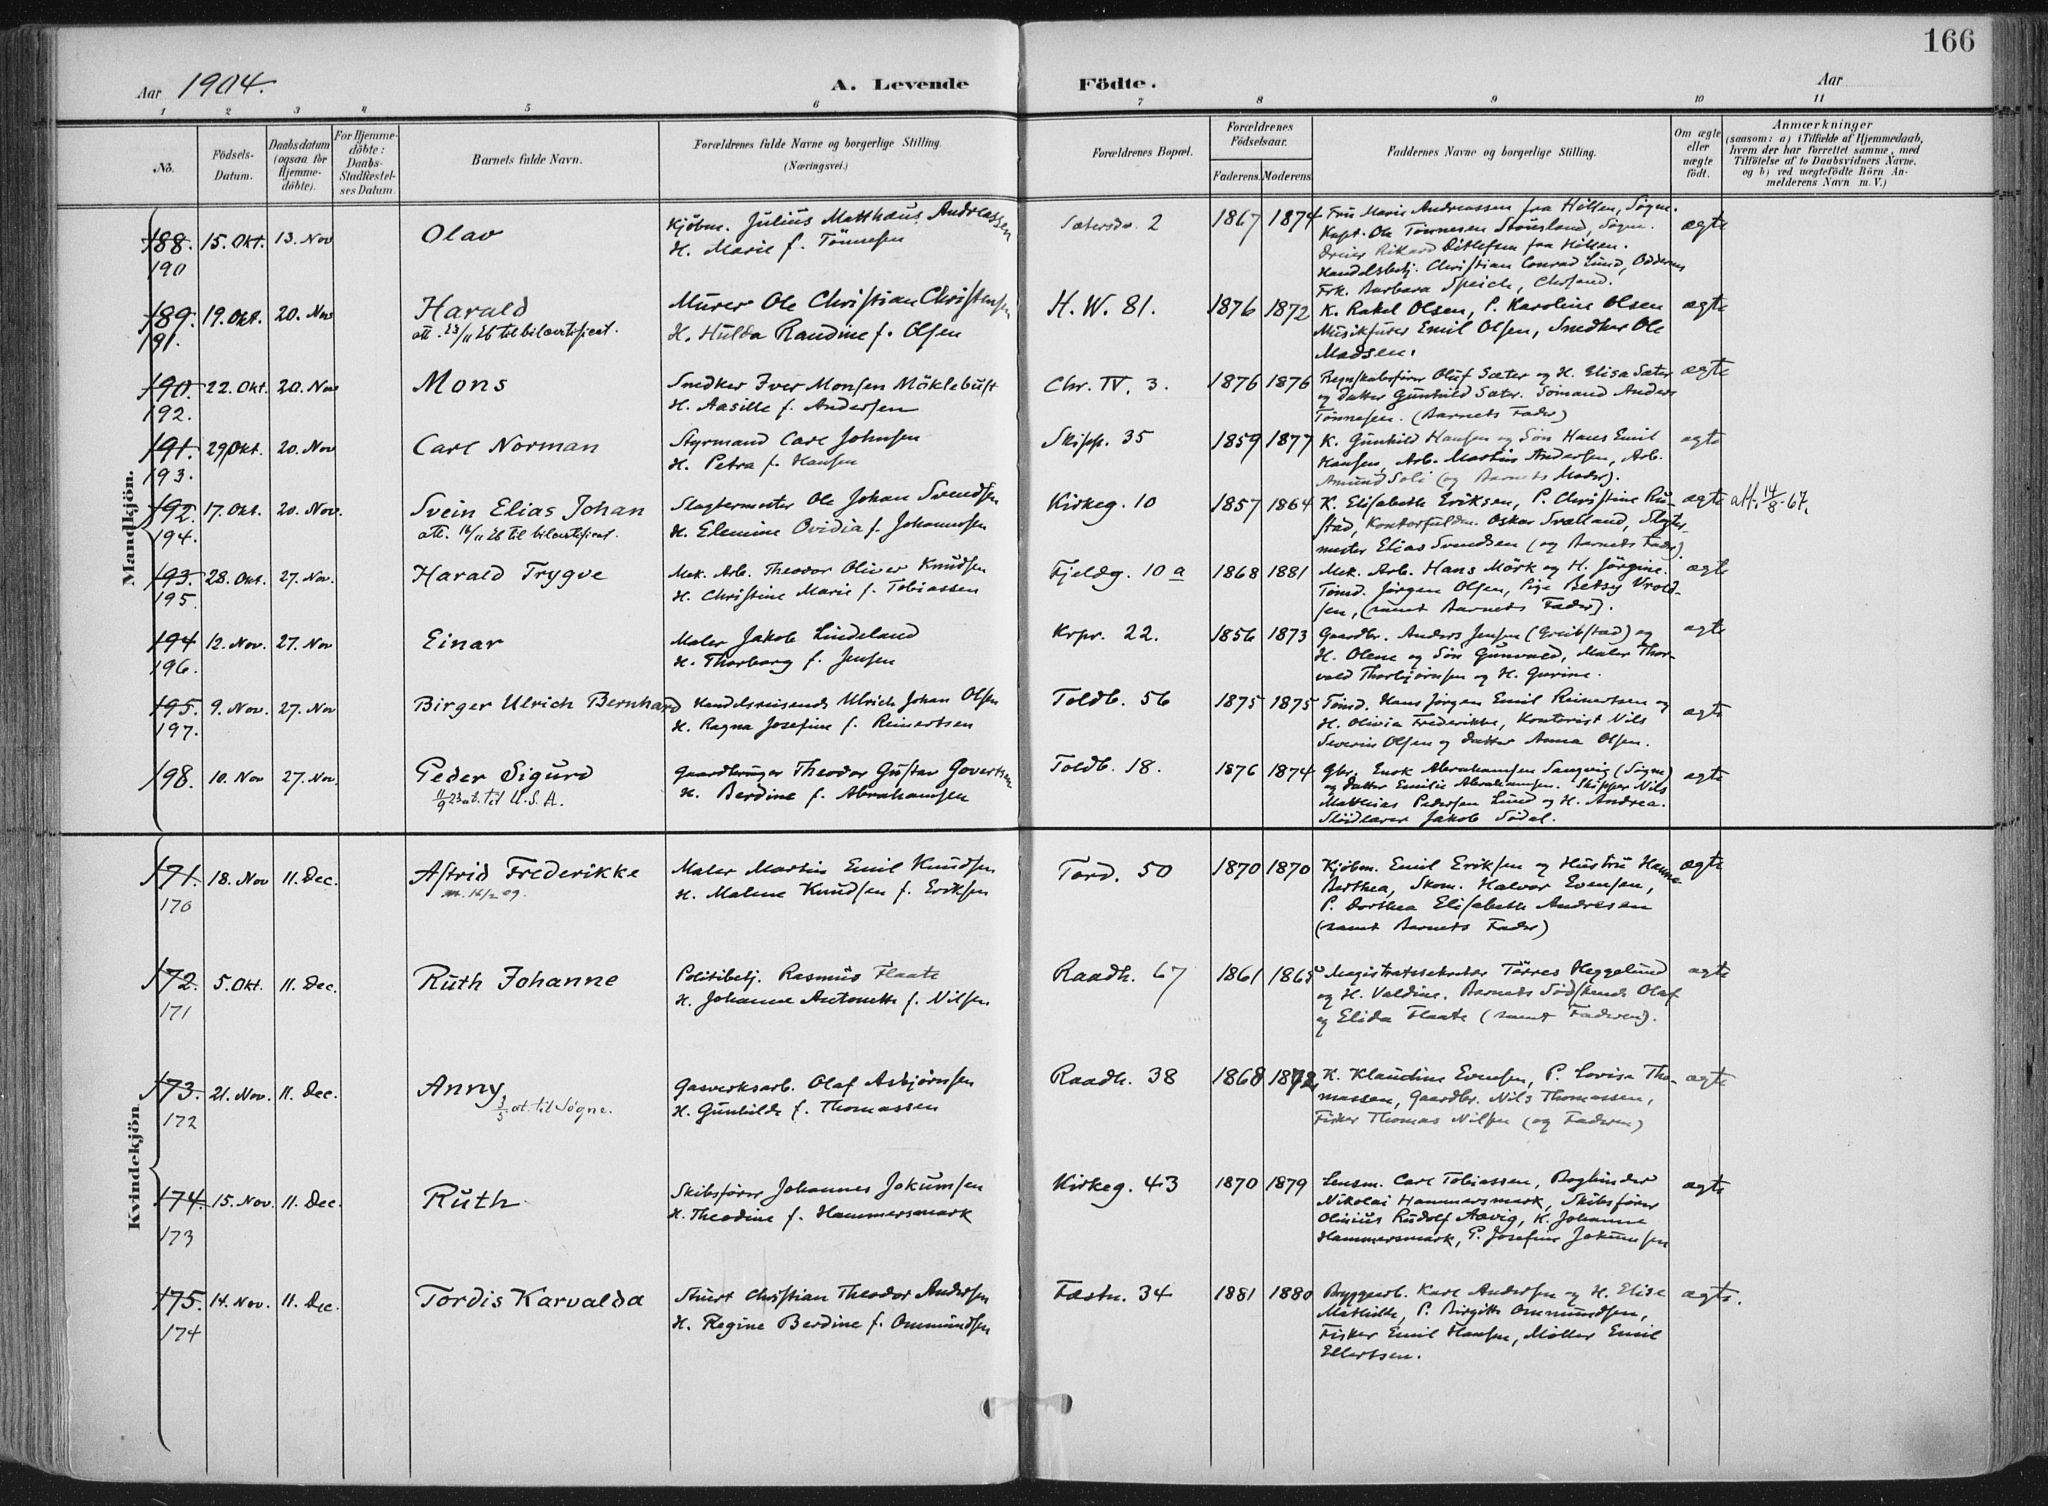 166
Aar 1904.
A. Levende Födte.
Aar
1 2 3 4 5 6 7 8 9 10 11
No.
Födsels-Datum.
Daabsdatum (ogsaa for Hjemme-döbte).
For Hjemme-döbte: Daabs-Stadfæstel-ses Datum.
Barnets fulde Navn.
Forældrenes fulde Navne og borgerlige Stilling.
(Næringsvei.)
Forældrenes Bopæl.
Forældrenes Födselsaar.
Faderens. Moderens.
Faddernes Navne og borgerlige Stilling.
Om ægte eller uægte födt.
Anmærkninger
(saasom: a) i Tilfælde af Hjemmedaab,
hvem der har forrettet samme, med
Tilföielse af to Daabsvidners Navne,
og b) ved uægtefödte Börn An-
melderens Navn m. V.)
Mandkjön.
188. 15. Okt. 13. Nov Olav Kjöbm. Julius Matthæus Andreassen Sætersdr. 2 1867 1874 Fru Marie Andreassen fra Höllen, Søgne. ægte
190 H. Marie f. Tönnesen Kapt. Ole Tönnesen Stousland, Søgne.
Rikard Ditlefsen fra Höllen.
Handelsbetj. Christian Conrad Lund, Oddernes
Frk. Barbara Speich, Chrsand.
189. 19. Okt. 20. Nov Harald Murer Ole Christian Christensen H. W. 81. 1876 1872 K. Rakel Olsen, P. Karoline Olsen ægte
191. att. 23/11 26 til bilcertificat. H. Hulda Raudine f. Olsen Musikfører Emil Olsen, Snedker Ole
Madsen.
190. 22. Okt. 20. Nov Mons Snedker Iver Monsen Möklebust Chr. IV. 3. 1876 1876 Regnskabsfører Oluf Sæter og H. Elisa Sæter ægte
192. H. Aasille f. Andersen og datter Gunhild Sæter. Sömand Anders
Tönnesen. (Barnets Fader)
191. 29 Okt. 20. Nov Carl Norman Styrmand Carl Johnsen Skipp. 35 1859 1877 K. Gunhild Hansen og Søn Hans Emil ægte
193. H. Petra f. Hansen Hansen, Arb. Martin Andersen, Arb.
Amund Soli (og Barnets Moder).
192. 17. Okt. 20. Nov. Svein Elias Johan Slagtermester Ole Johan Svendsen Kirkeg. 10 1857 1864 K. Elisabeth Eriksen, P. Christine Ru- ægte att. 14/8-67.
194. att. 16/11 26 til bilcertificat. H. Elemine Ovidia f. Johannesen stad, Kontorfuldm. Oskar Svaland, Slagter-
mester Elias Svendsen (og Barnets Fader).
193. 28. Okt. 27. Nov. Harald Trygve Mek. Arb. Theodor Oliver Knudsen Fjeldg. 10 a 1868 1881 Mek. Arb. Hans Mörk og H. Jörgine. ægte
195. H. Christine Marie f. Tobiassen Tömd. Jörgen Olsen, Pige Betsy Vrold-
sen, (samt Barnets Fader).
194 12. Nov. 27. Nov Einar Maler Jakob Lindeland Krpr. 22. 1856 1873 Gaardbr. Anders Jensen (Greibstad) og ægte
196. H. Thorborg f. Jensen H. Olene og Søn Gunvald, Maler Thor-
vald Thorbjörnsen og H. Gurine.
195. 9. Nov. 27. Nov Birger Ulrich Bernhard Handelsreisende Ulrich Johan Olsen Toldb. 56 1875 1875 Tömd. Hans Jörgen Emil Reinertsen og ægte
197. H. Ragna Josefine f. Reinertsen H. Olivia Frederikke, Kontorist Nils
Severin Olsen og datter Anna Olsen.
198. 10. Nov 27. Nov. Peder Sigurd Gaardbruger Theodor Gustav Govertsen Toldb. 18. 1876 1874 Gbr. Enok Abrahamsen Sangvig (Søgne) ægte
11/9 23 at. til U.S.A. H. Berdine f. Abrahamsen og datter Emilie Abrahamsen. Skipper Nils
Matthias Pedersen Lund og H. Andrea.
Slöidlærer Jakob Södal.
Kvindekjön.
171. 18. Nov 11. Dec. Astrid Frederikke Maler Martin Emil Knudsen Tord. 50 1870 1870 Kjöbm. Emil Eriksen og Hustru Hanna ægte
170 H. Malene Knudsen f. Eriksen Berthea, Skom. Halvor Evensen,
P. Dorthea Elisabeth Andresen
(samt Barnets Fader)
172. 5. Okt. 11. Dec. Ruth Johanne Politibetj. Rasmus Flaate Raadh. 67 1861 1865 Magistratssekretær Törres Heggelund ægte
171 H. Johanne Antonette f. Nilsen og H. Valdine. Barnets Södskende Olaf
og Elida Flaate (samt Faderen).
173. 21. Nov. 11. Dec. Anny Gasverksarb. Olaf Asbjörnsen Raadh. 38 1868 1872 K. Klaudine Evensen, P. Lovisa Tho- ægte
172 3/5 at. til Søgne. H. Gunhilde f. Thomassen massen, Gaardbr. Nils Thomassen,
Fisker Thomas Nilsen (og Faderen)
174. 15. Nov. 11. Dec. Ruth Skibsfører Johannes Jokumsen Kirkeg. 43 1870 1879 Lensm. Carl Tobiassen, Bogbinder ægte
173 H. Theodine f. Hammersmark Nikolai Hammersmark, Skibsfører
Olinius Rudolf Aavig, K. Johanne
Hammersmark, P. Josefine Jokumsen
175. 14. Nov. 11. Dec. Tordis Karvalda Stuert Christian Theodor Andersen Fæstn. 34 1881 1880 Bryggearb. Karl Andersen og H. Elise ægte.
174 H. Regine Berdine f. Ommundsen Mathilde, P. Birgitte Ommundsen,
Fisker Emil Hansen, Möller Emil
Ellertsen.